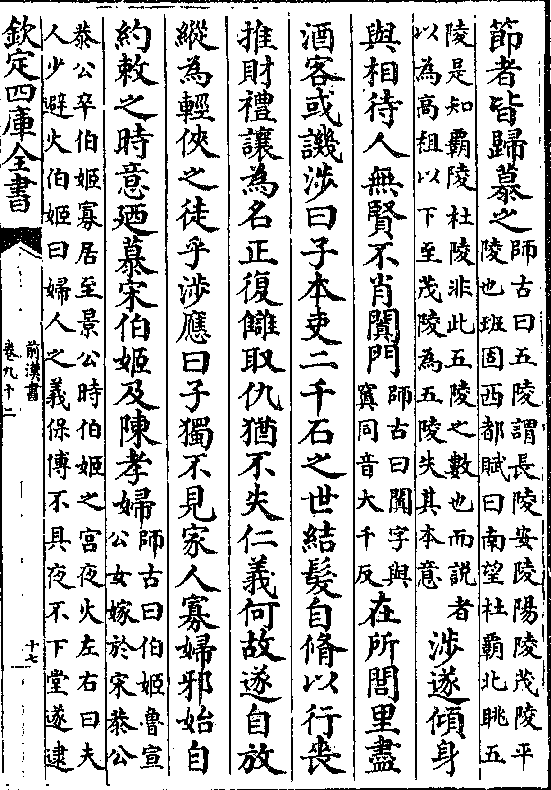 節者皆歸慕之師古曰五陵謂長陵安陵陽陵茂陵平
陵也班固西都賦曰南望杜霸北眺五
陵是知霸陵杜陵非此五陵之數也而說者
以為高祖以下至茂陵為五陵失其本意涉遂傾身
與相待人無賢不肖闐門師古曰闐字與
窴同音大千反在所閭里盡
酒客或譏涉曰子本吏二千石之世結髮自脩以行喪
推財禮讓為名正復讎取仇猶不失仁義何故遂自放
縱為輕俠之徒乎涉應曰子獨不見家人寡婦邪始自
約敕之時意廼慕宋伯姬及陳孝婦師古曰伯姬魯宣
公女嫁於宋恭公
恭公卒伯姬寡居至景公時伯姬之宮夜火左右曰夫
人少避火伯姬曰婦人之義保傅不具夜不下堂遂逮
欽定四庫全書
前漢書
卷九十二
十七